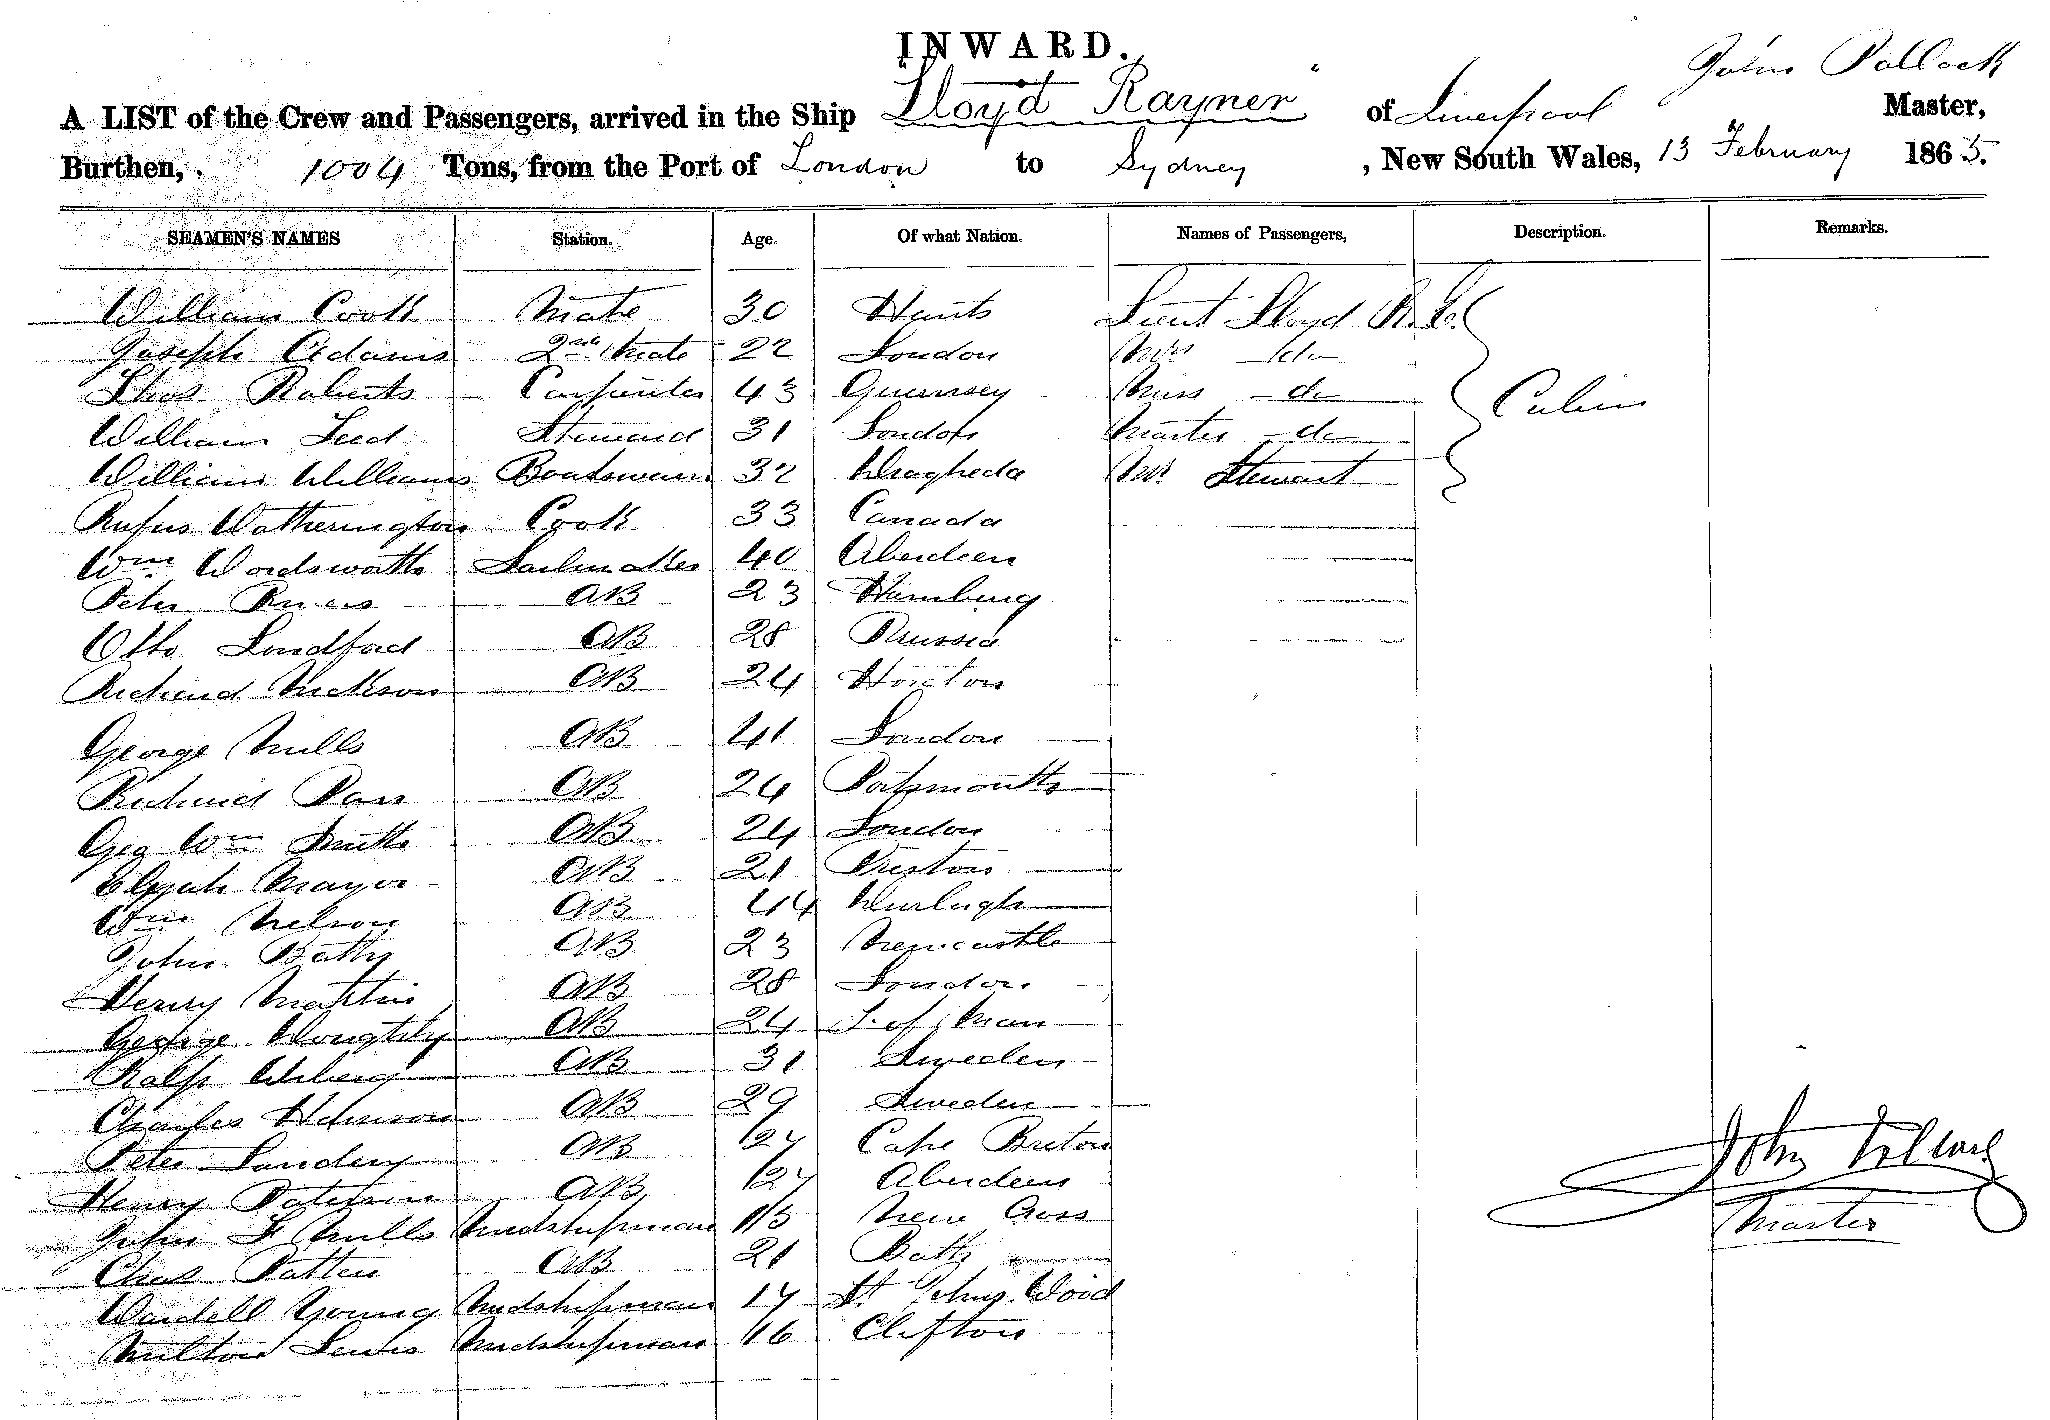 INWARD.
John Pollock
A LIST of the Crew and Passengers, arrived in the Ship "Lloyd Rayner" of Liverpool Master,
Burthen, 1004 Tons, from the Port of London to Sydney, New South Wales, 13 February 1865.
SEAMEN'S NAMES Station. Age. Of what Nation. Names of Passengers, Description. Remarks.
William Cook Mate 30 Hants Lieut Lloyd
Joseph Adams 2nd Mate 22 London Mrs do
Thos Roberts Carpenter 43 Guernsey Miss do Cabin
William Steward 31 London Master do
William Williams Boatswain 32 Dragheda Mr Stewart
Rufus Watherington Cook 33 Canada
Wm Wordsworth Sailmaker 40 Aberdeen
Peter AB 23 Hamburg
Otto AB 28 Prussia
Richard Nickson AB 24
George Mills AB 41 London
Richard AB 24 Portsmouth
Geo Wm Smith AB 24 London
Elijah Mayor AB 21 Preston
Wm Nelson AB 44
John Batty AB 23 Newcastle
Henry Martin AB 28 London
George AB 24 I. of Man
Ralf AB 31 Sweden
Charles AB 29 Sweden
Peter AB 27 Cape Breton
Henry Paterson AB 27 Aberdeen
John F Mills Midshipman 15 New Cross
Chas Patten AB 21 Bath
Wardell Young Midshipman 17 St Johns Wood
Milton Lewis Midshipman 16 Clifton
John Pollock
Master